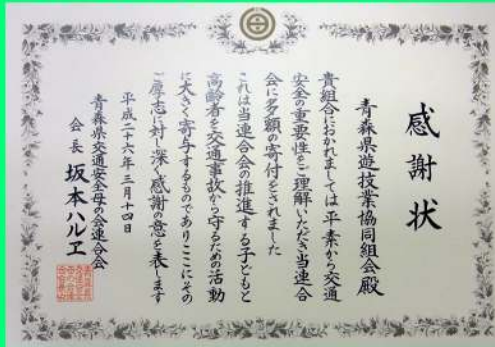 感謝状
青森県遊技業協同組合殿
貴組合におかれましては平素から交通
安全の重要性をご理解いただき当連合
会に多額の寄付をされました
これは当連合会の推進する子どもと
高齢者を交通事故から守るための活動
に大きく寄与するものでありここにその
ご厚志に対し深く感謝の意を表します
平成二十六年三月十四日
青森県交通安全母の会連合会
会長 坂本ハルヱ